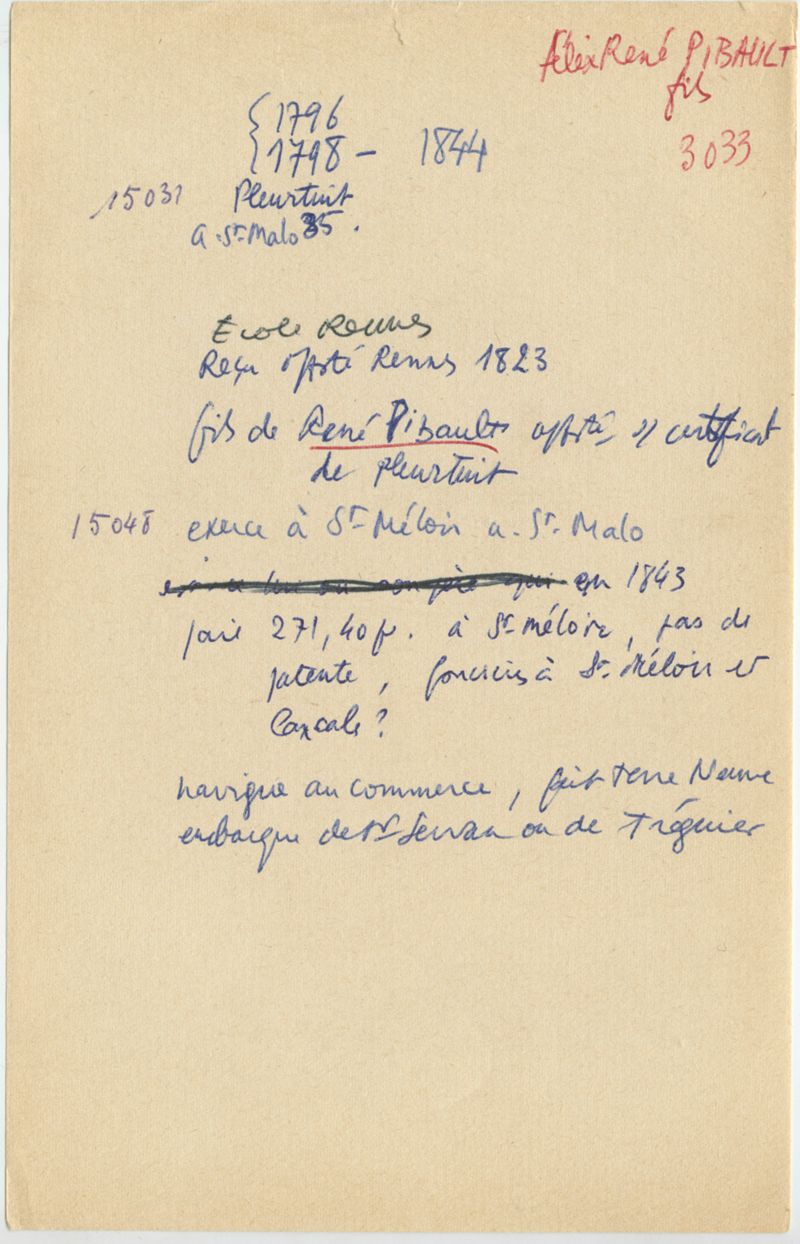 Félix René PIBAULT
fils
3033
{ 1796
{ 1798 - 1844
15031 Pleurtuit
a. St-Malo 35.
Ecole Rennes
Reçu offté Rennes 1823
fils de René Pibault offté, s/ certificat
de Pleurtuit
15048 exerce à St-Méloir a. St-Malo
en 1843
paie 271,40 fr. à St-Méloir, pas de
patente, fonciers à St-Méloir et
Cancale?
navigue au commerce, fait Terre Neuve
embarque de St Servan ou de Tréguier